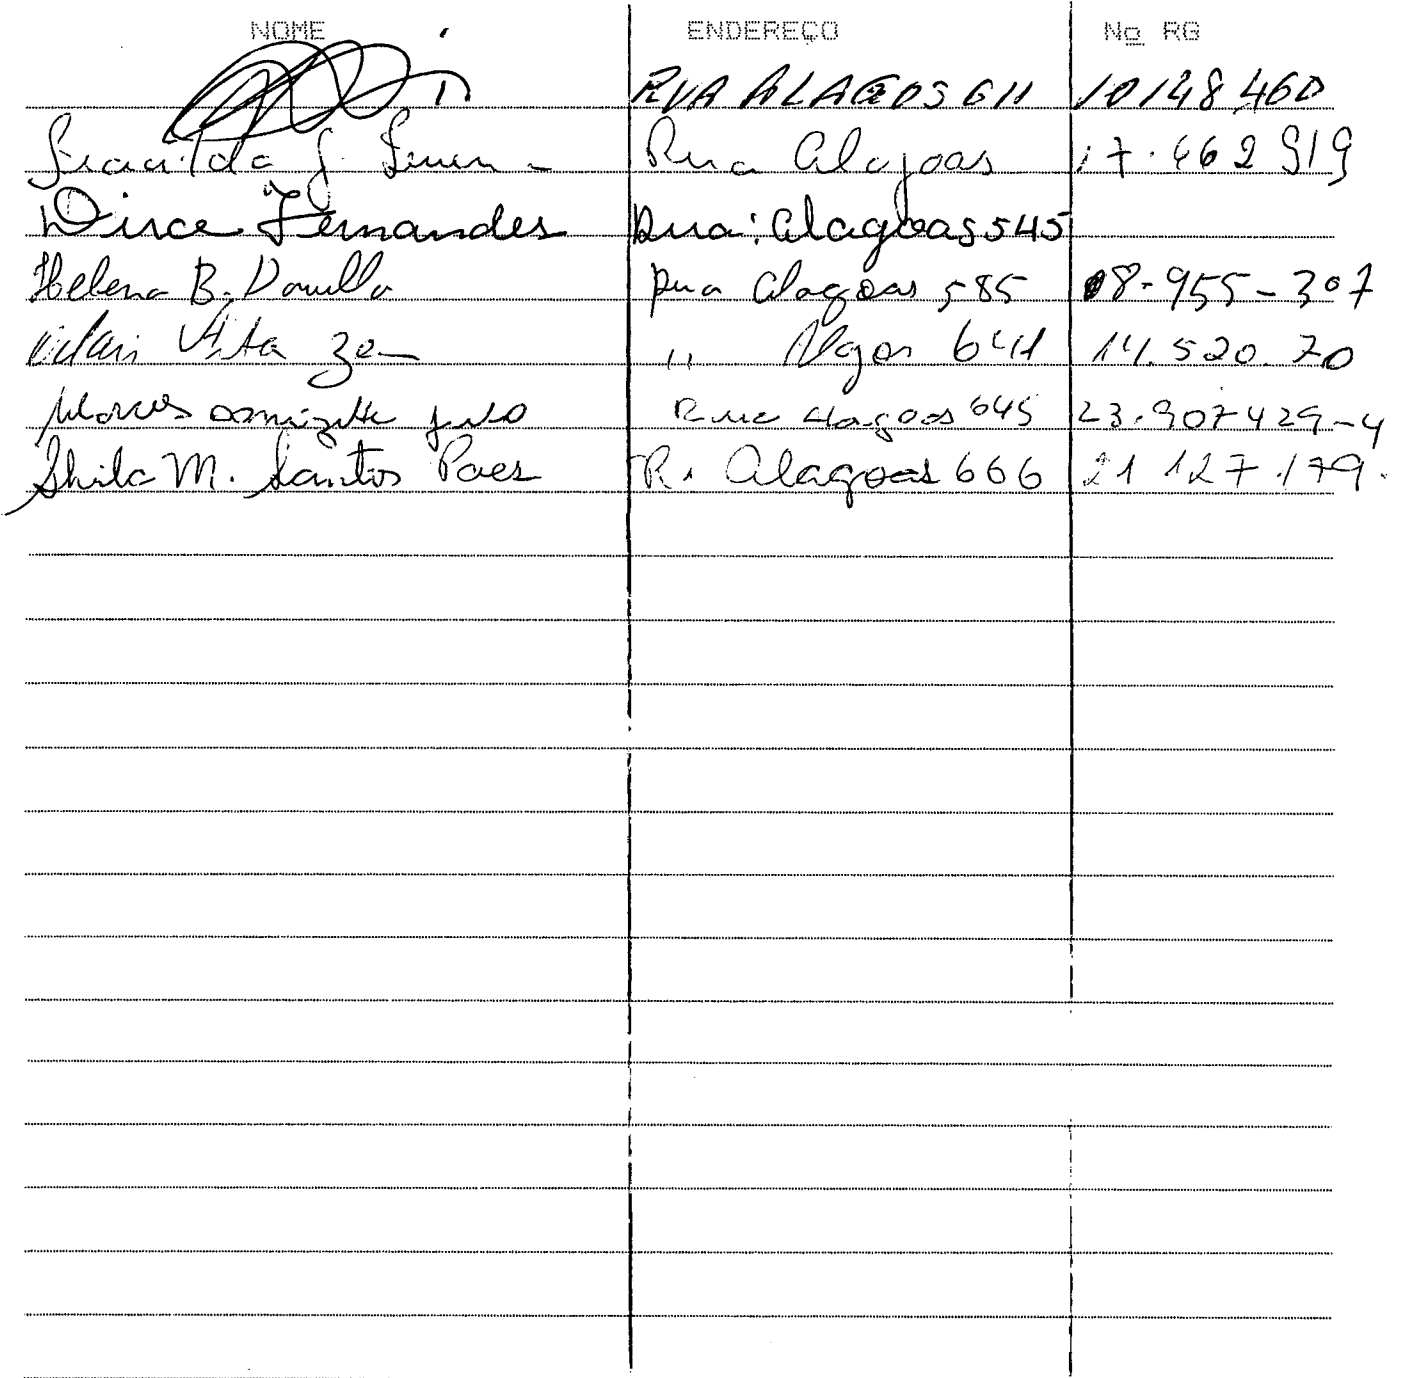 NOME ENDEREÇO Nº RG
RUA ALAGOS 611 10148460
Rua Alagoas 17.462 919
Dirce Fernandes Rua: Alagoas 545
Helena B. Rua Alagoas 585 08-955-307
Vita " 641 14.520.70
Marcos Rua Alagoas 645 23.907429-4
Shila M. Santos Paes R. Alagoas 666 21 127.179.